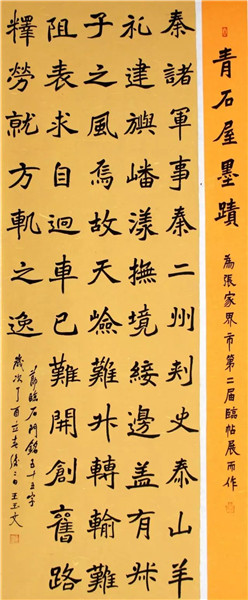 青石屋墨蹟
為張家界市第二届臨帖展而作
秦諸軍事秦二州刾史泰山羊
礼建嶓漾撫境綏邊盖有叔
子之風焉故天嶮難升轉輸難
阻表求自迴車已難開創舊路
釋勞就方軌之逸
節臨石門銘五十五字
歲次丁酉立春後二日王玉文